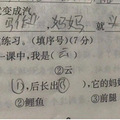 变成汽
妈妈 就
练习。(填序号)(7分)
一课中,我是( 云 )
②云
),后长出( ),它的妈
②鲤鱼 ③前腿